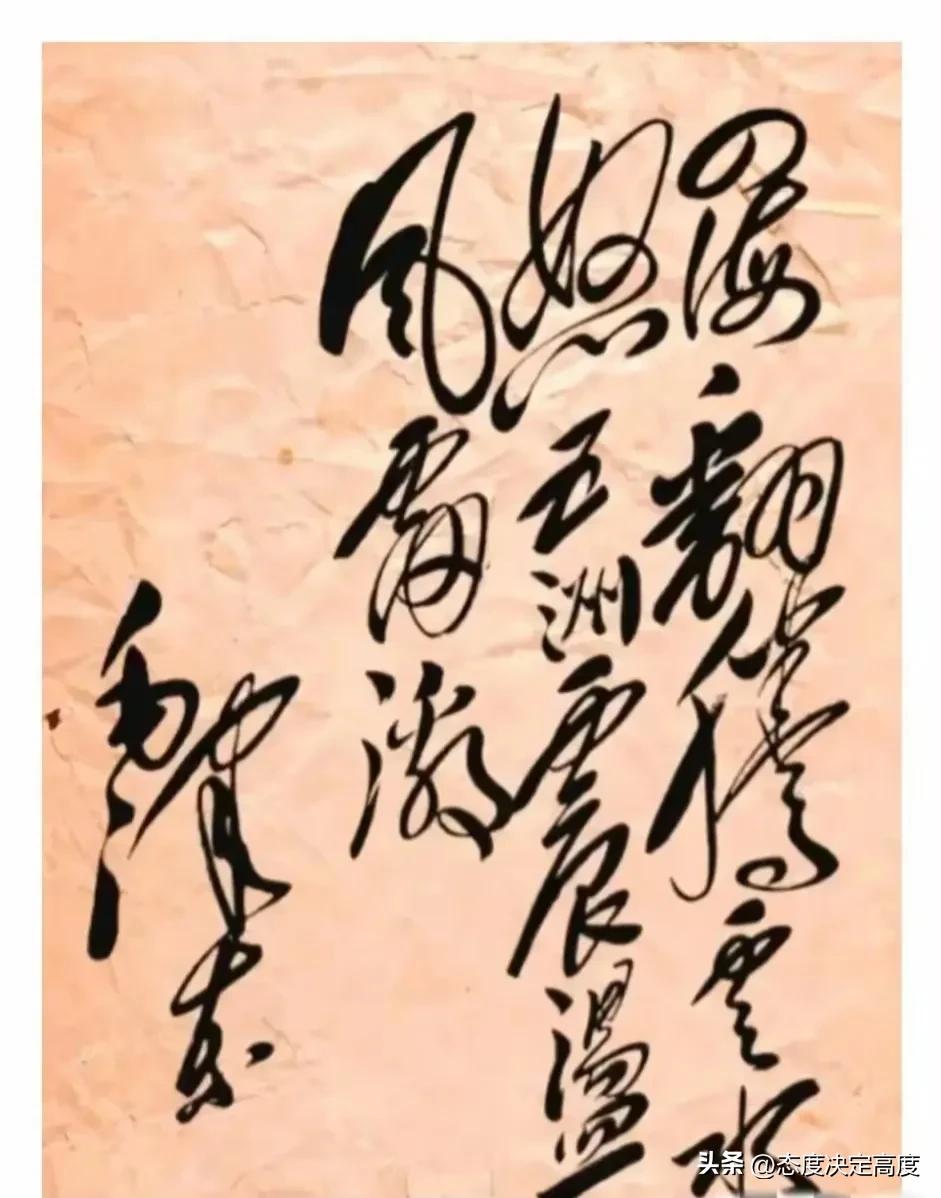 四海翻騰雲水
怒五洲震盪
風雷激
毛澤东
头条 @态度决定高度